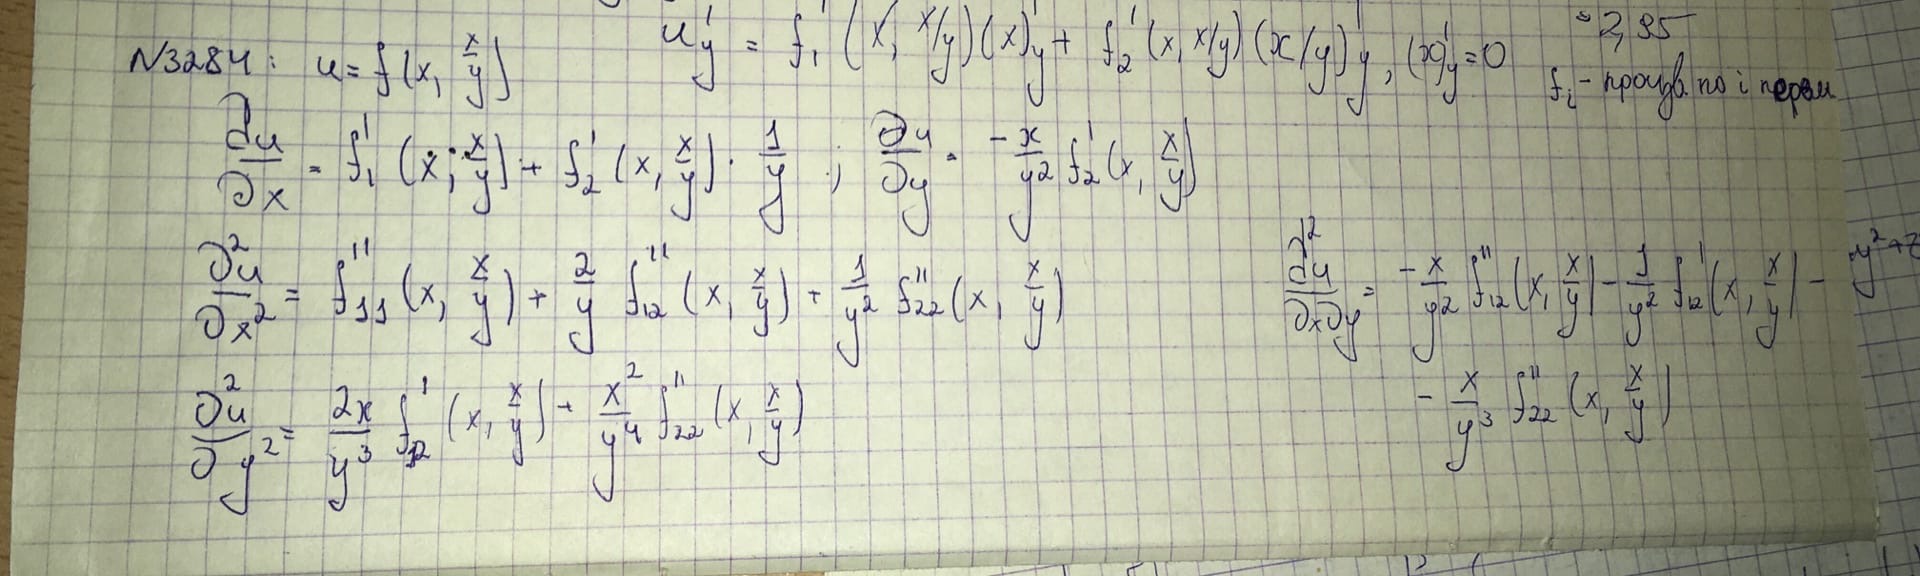 ≈ 2,95
N3284: u = f(x, x/y)
u'_y = f'_1 (x, x/y)(x)'_y + f'_2 (x, x/y)(x/y)'_y, (x)'_y = 0
f_i - произв. по i перем
∂u/∂x = f'_1 (x; x/y) + f'_2 (x, x/y) · 1/y ; ∂u/∂y = -x/y² f'_2 (x, x/y)
∂²u/∂x² = f''_11 (x, x/y) + 2/y f''_12 (x, x/y) + 1/y² f''_22 (x, x/y)
∂²u/∂x∂y = -x/y² f''_12 (x, x/y) - 1/y² f'_12 (x, x/y) -
- x/y³ f''_22 (x, x/y)
∂²u/∂y² = 2x/y³ f'_2 (x, x/y) + x²/y⁴ f''_22 (x, x/y)